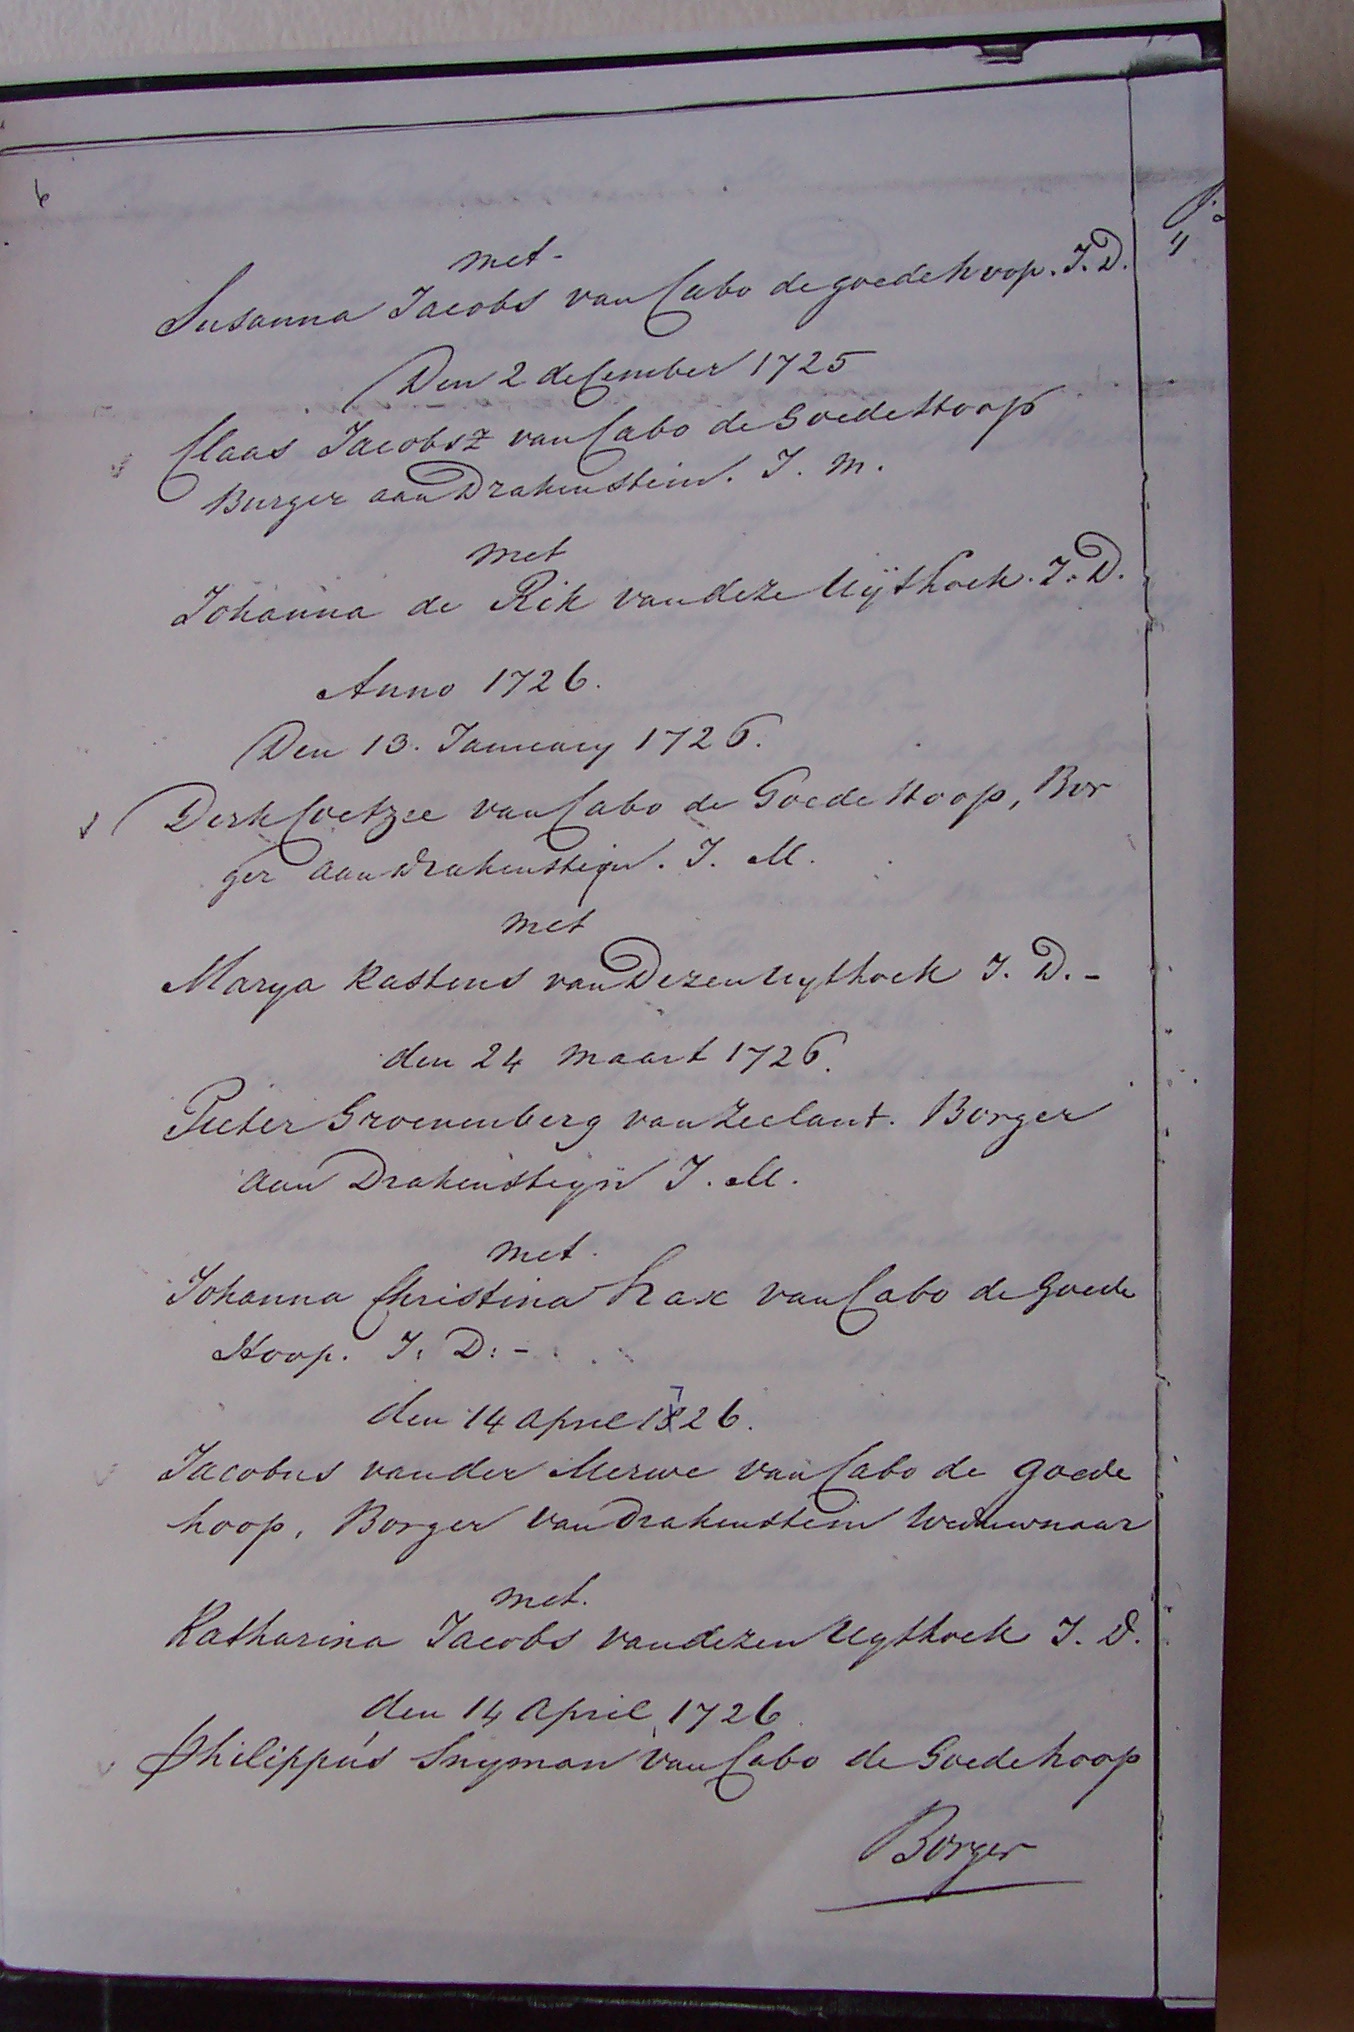 6
met-
Susanna Jacobs van Cabo de goede hoop. J. D.
Den 2 deCember 1725
Claas Jacobsz van Cabo de Goede Hoop
Burger aan Drakenstein. J. M.
met
Johanna de Rik van deze Uÿthoek. J. D.
Anno 1726.
Den 13. January 1726.
Derk Coetzee van Cabo de Goede Hoop, Bor
ger aan drakensteijn. J. M.
met
Marya Rastens van Dezen uythoek J. D. -
den 24 maart 1726.
Pieter Groenenberg van Zeelant. Borger
aan Drakensteyn J. M.
met.
Johanna Christina van Cabo de Goede
Hoop. J: D: -
den 14 april 1726.
Jacobus vander Merwe van Cabo de goede
hoop, Borger van drakenstein Weduwnaar
met.
Katharina Jacobs van dezen Uythoek J. D.
den 14 april 1726
Philippus Snyman van Cabo de Goede hoop
Borger